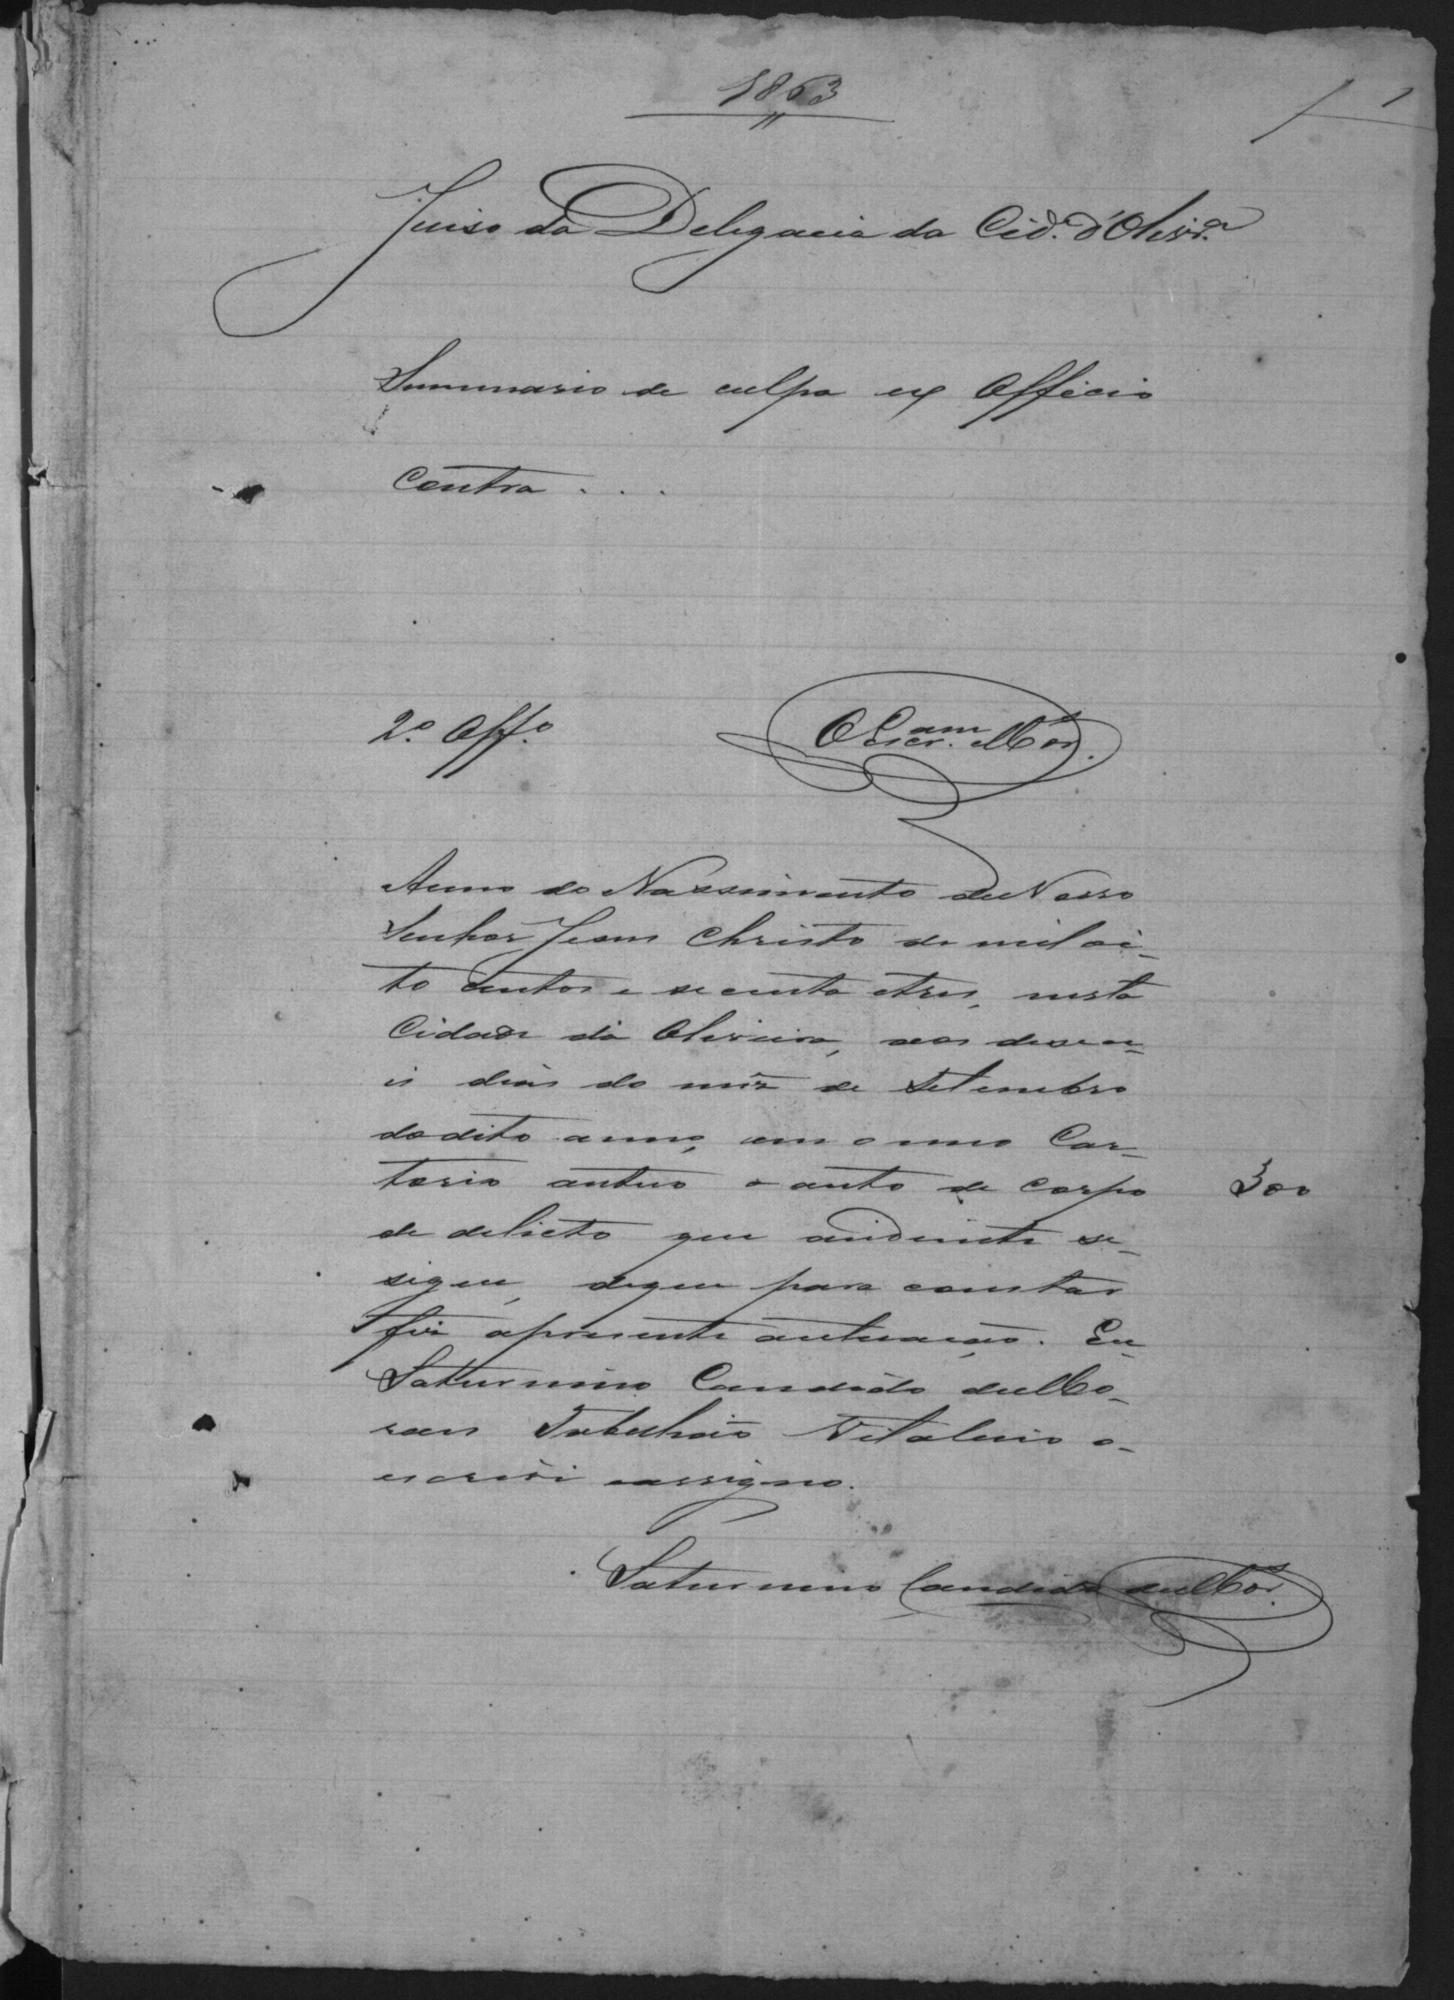 1863
1
Juiso da Delegacia da Cid.e d'Olivr.a
Summario de culpa ex Officio
Contra . . .
2.º Off.º
O Escr.am Mor.
Anno do Nascimento de Nosso
Senhor Jesus Christo de mil oi-
to centos e secenta e tres, nesta
Cidade da Oliveira, aos desese-
is dias do mez de Setembro
do dito anno, em o meo Car-
torio autuo o auto de corpo
300
de delicto que adiente se-
segue, do que para constar
fiz a presente autuação. Eu
Saturnino Candido de Mo-
raes Tabelhião Vitalicio o-
escrevi e assigno.
Saturnino Candido de Mor.